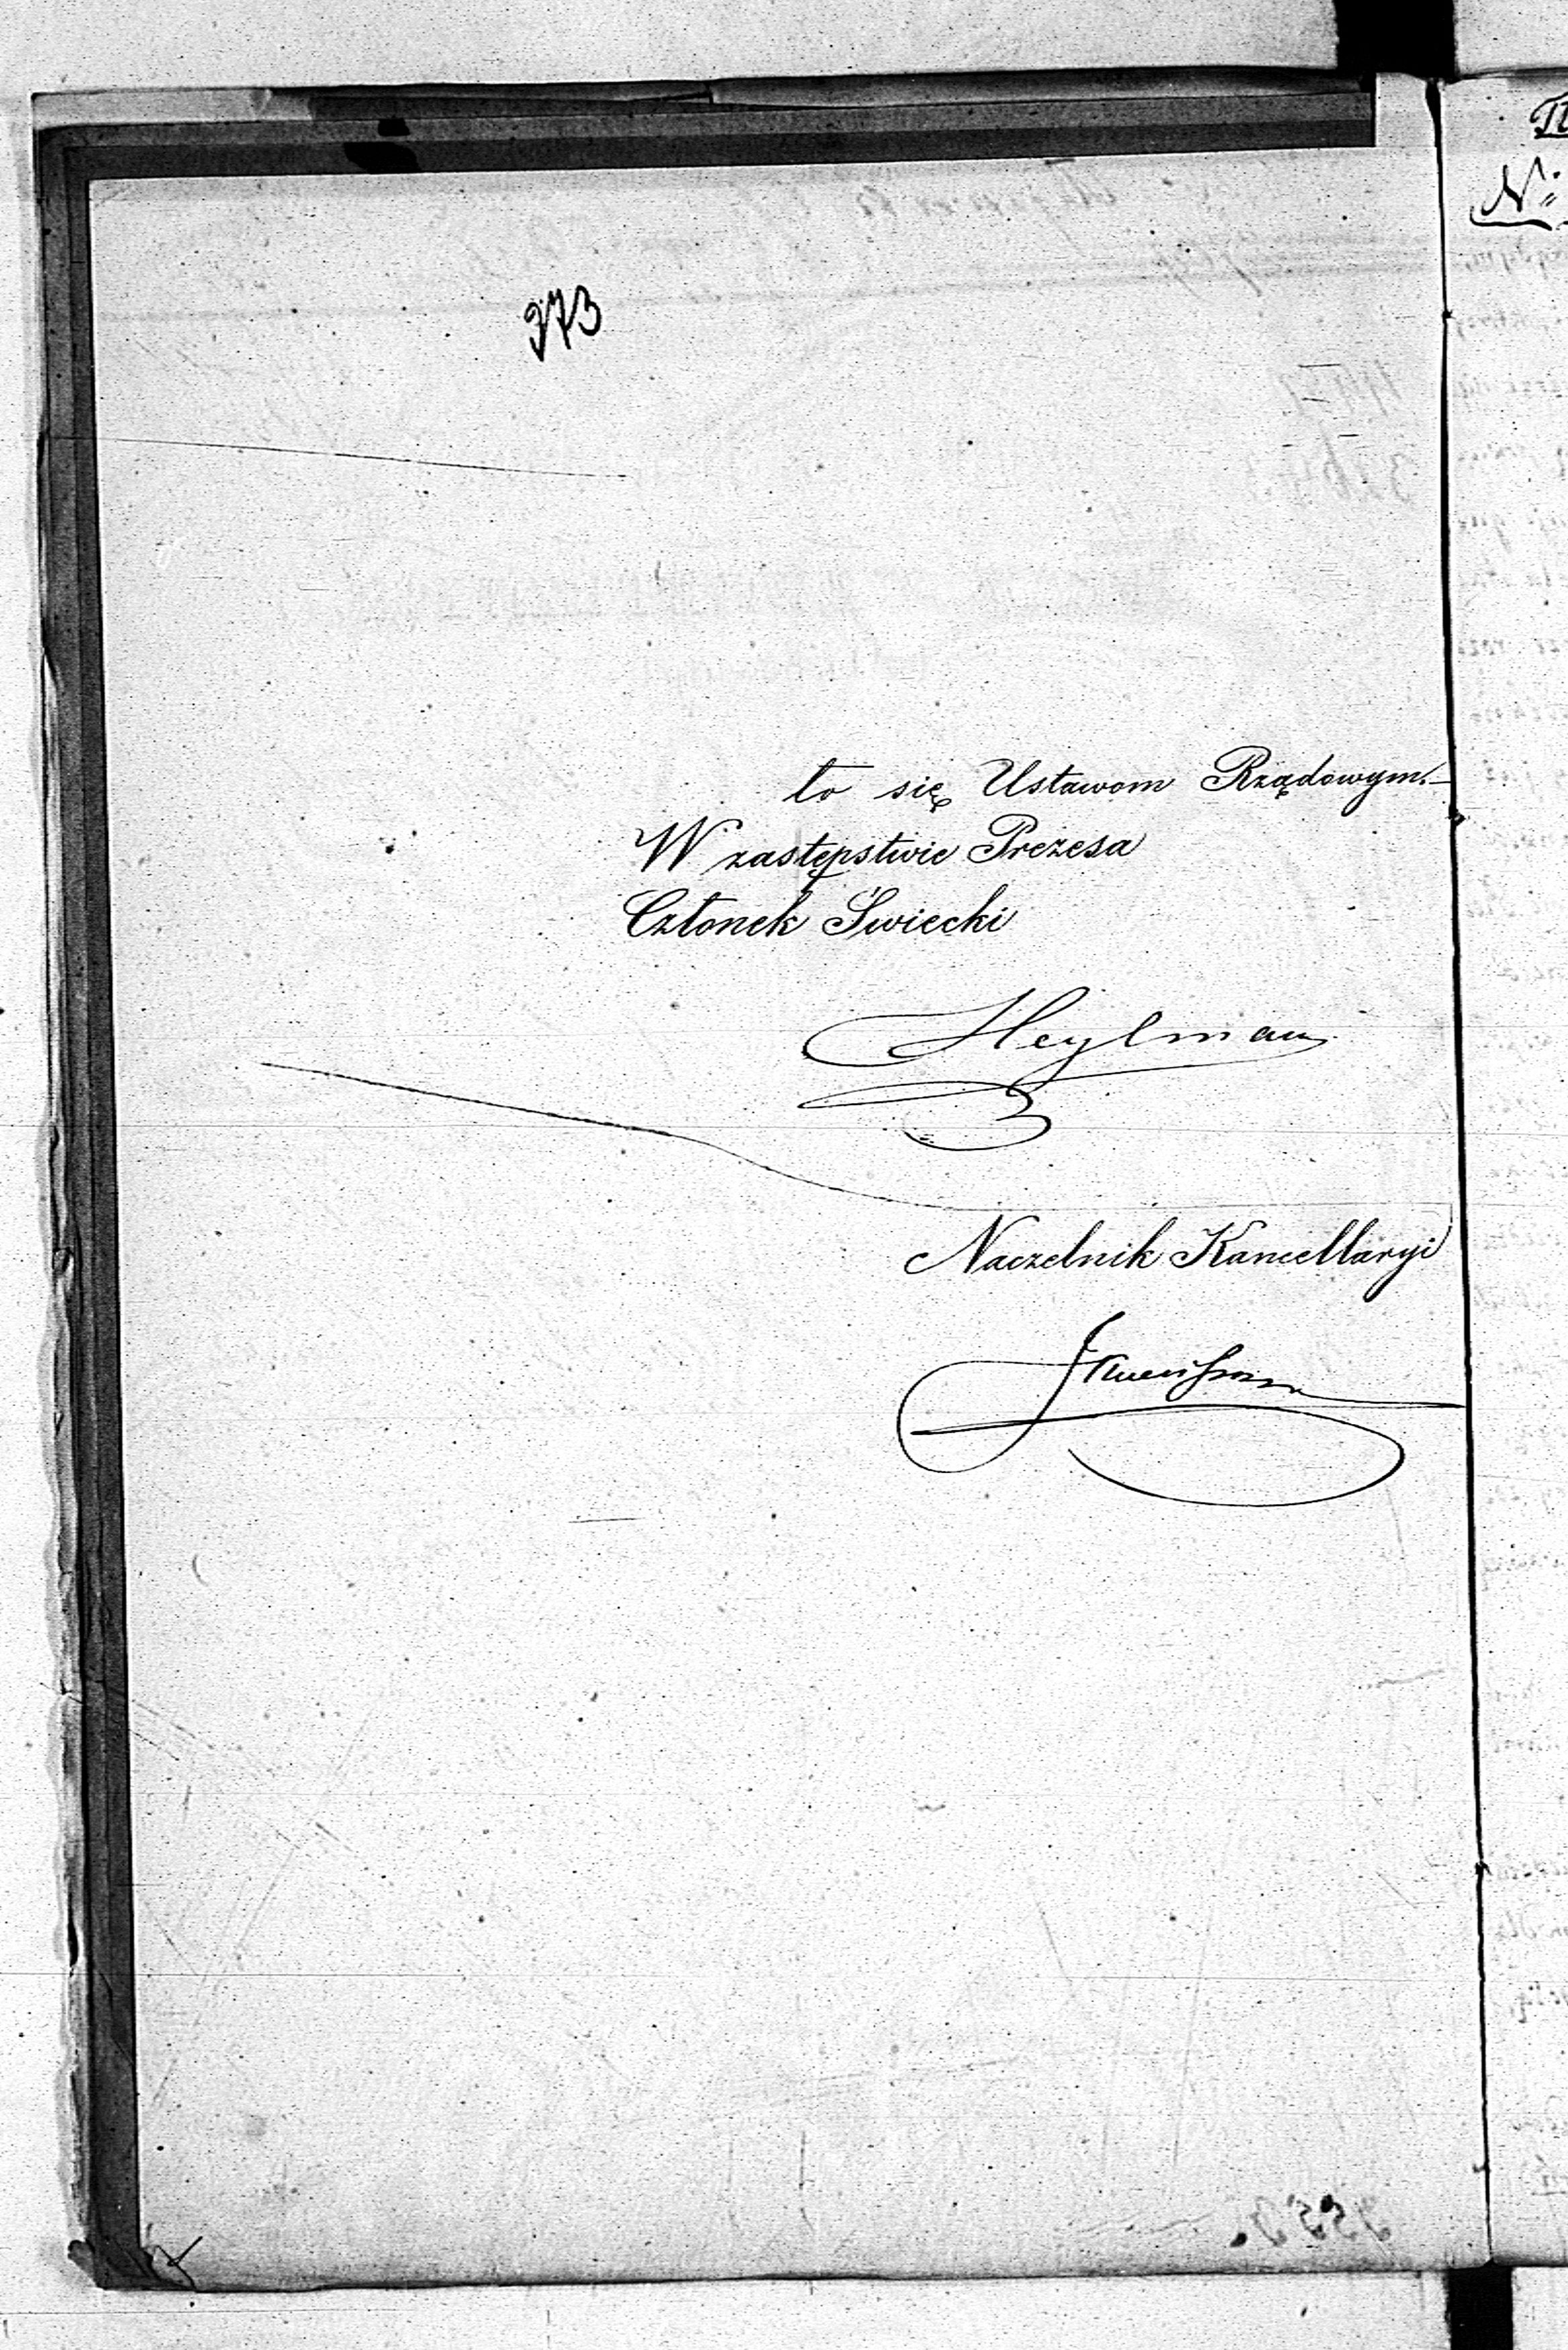 373
to się Ustawom Rządowym.
W zastępstwie Prezesa
Członek Świecki
Heylman
Naczelnik Kancellaryi
№